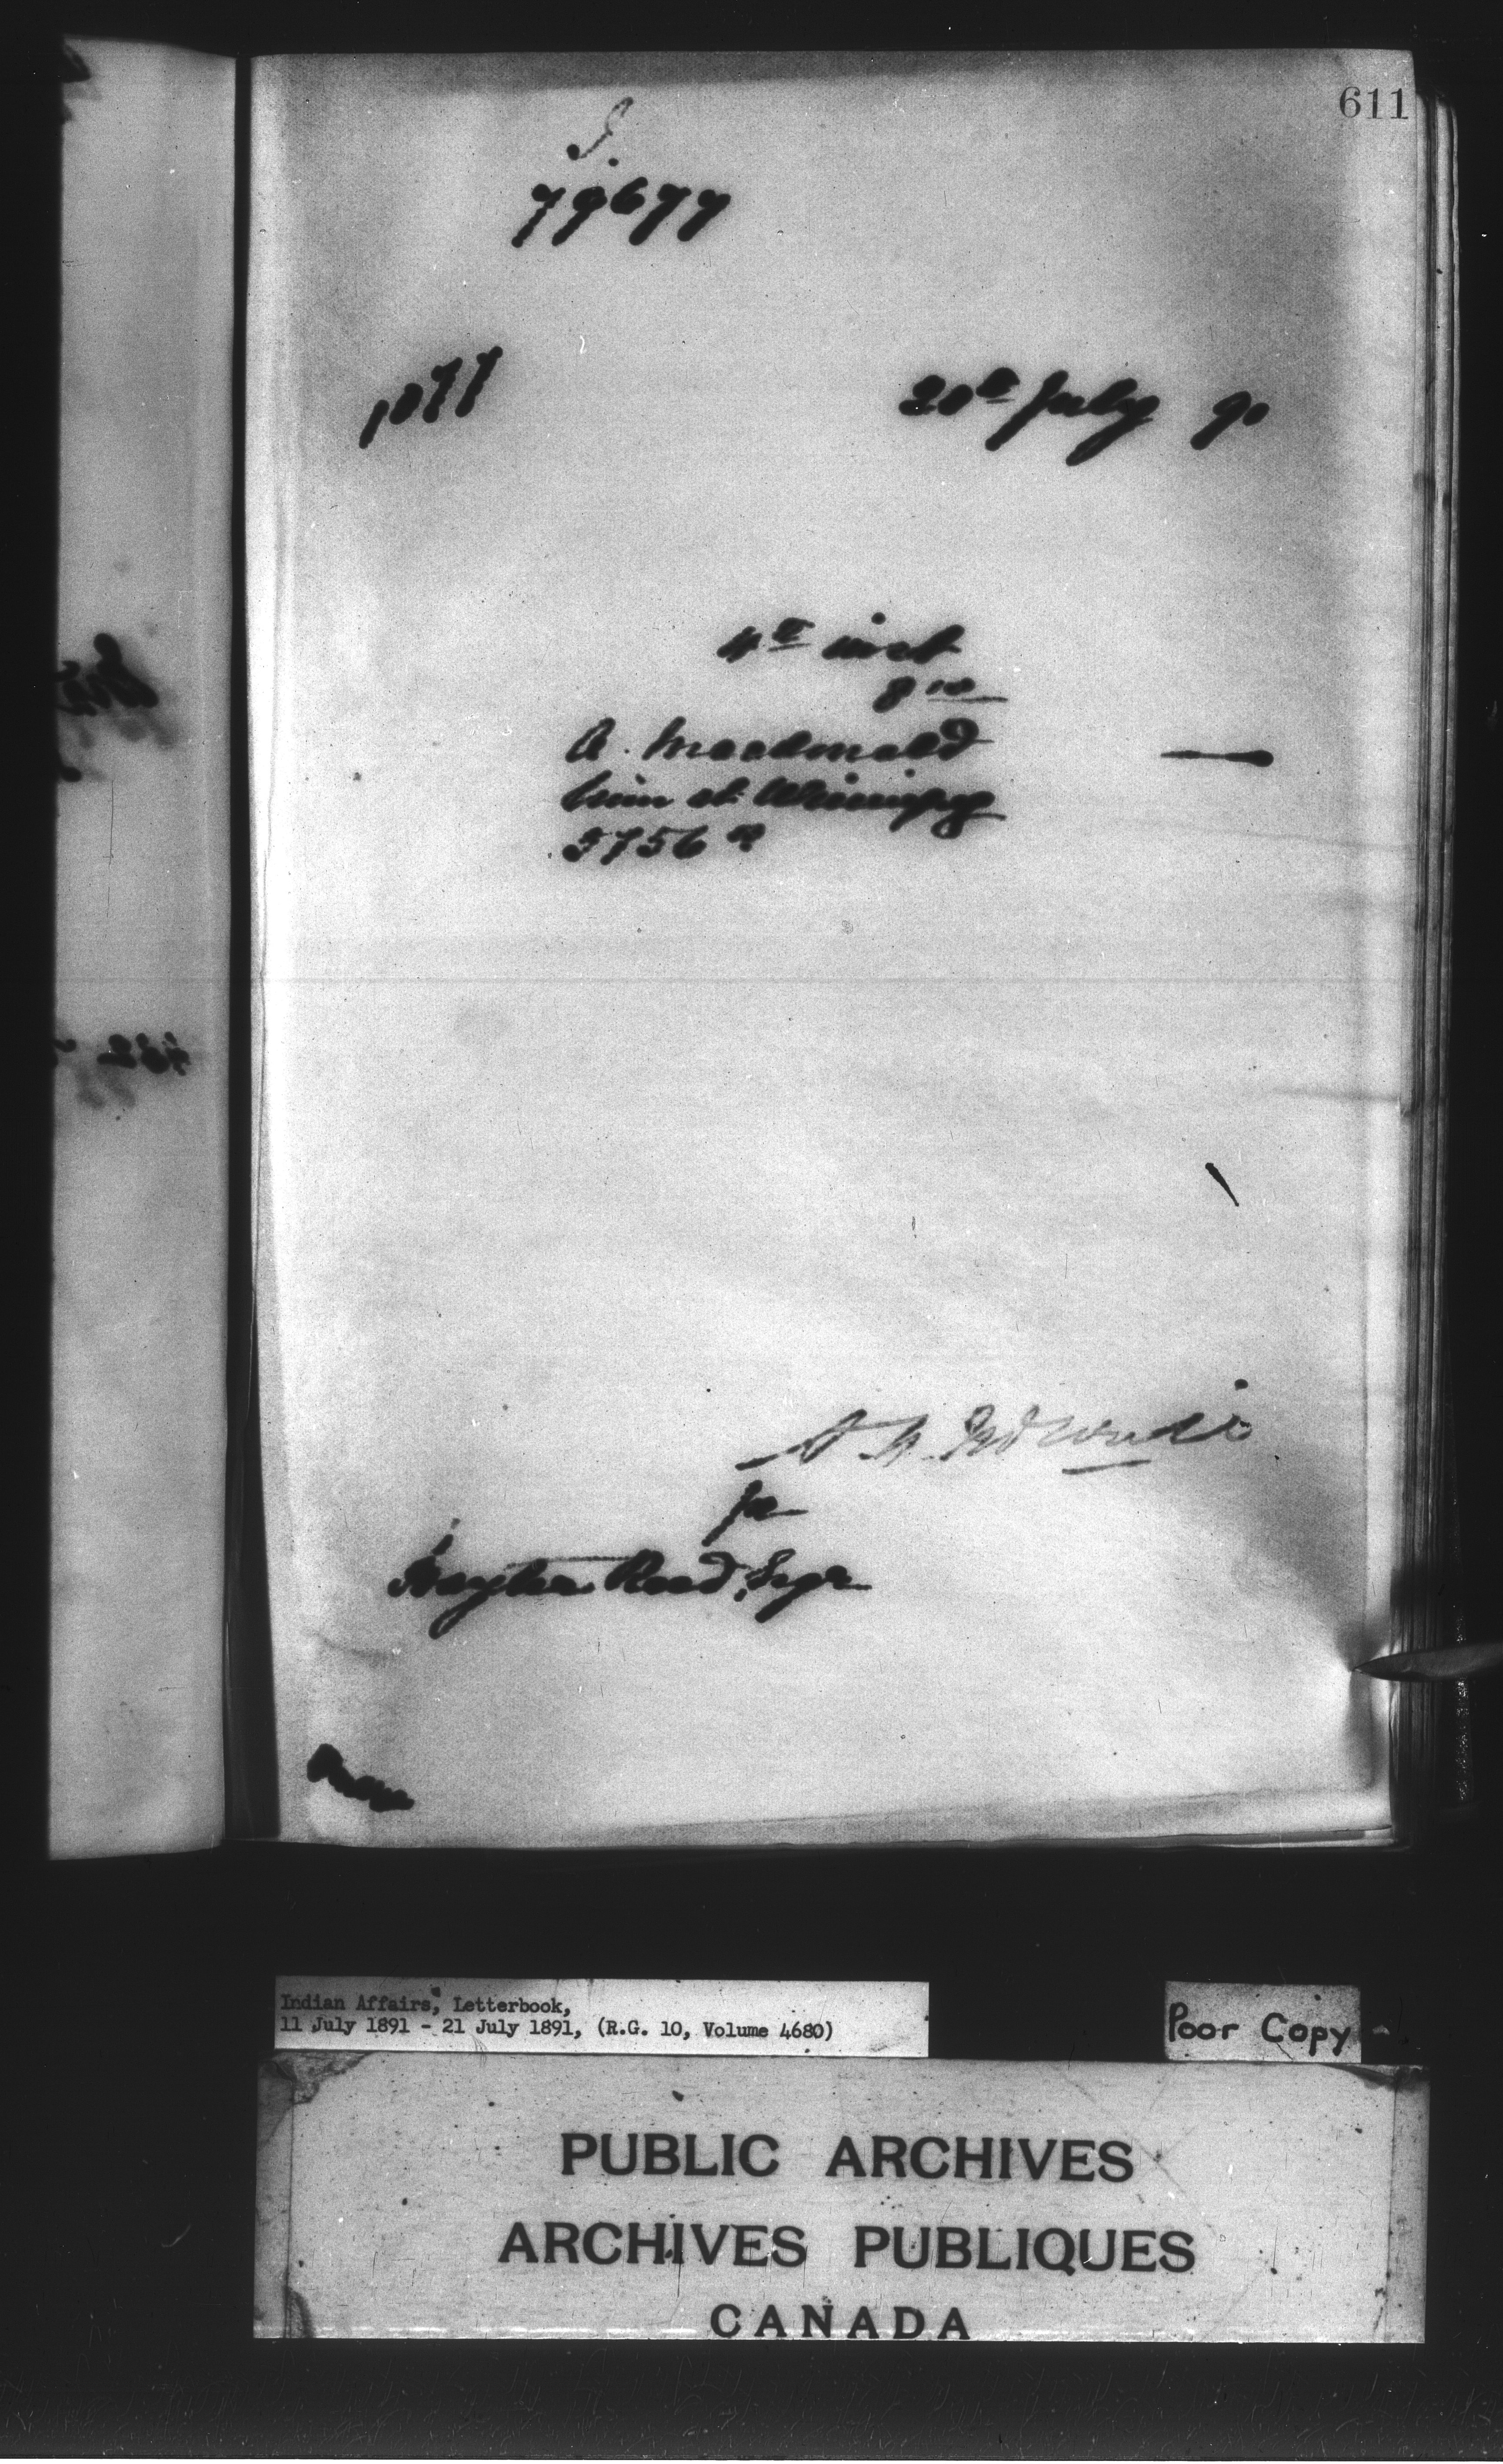 611
79677
20th July 91
4th inst
8 10
A. Macdonald
him at Winnipeg
5756
for
Hayter Reed, Esqr
Indian Affairs, Letterbook,
11 July 1891 - 21 July 1891, (R.G. 10, Volume 4680)
Poor Copy
PUBLIC ARCHIVES
ARCHIVES PUBLIQUES
CANADA